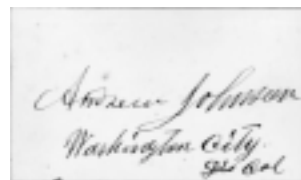 Andrew Johnson
Washington City.